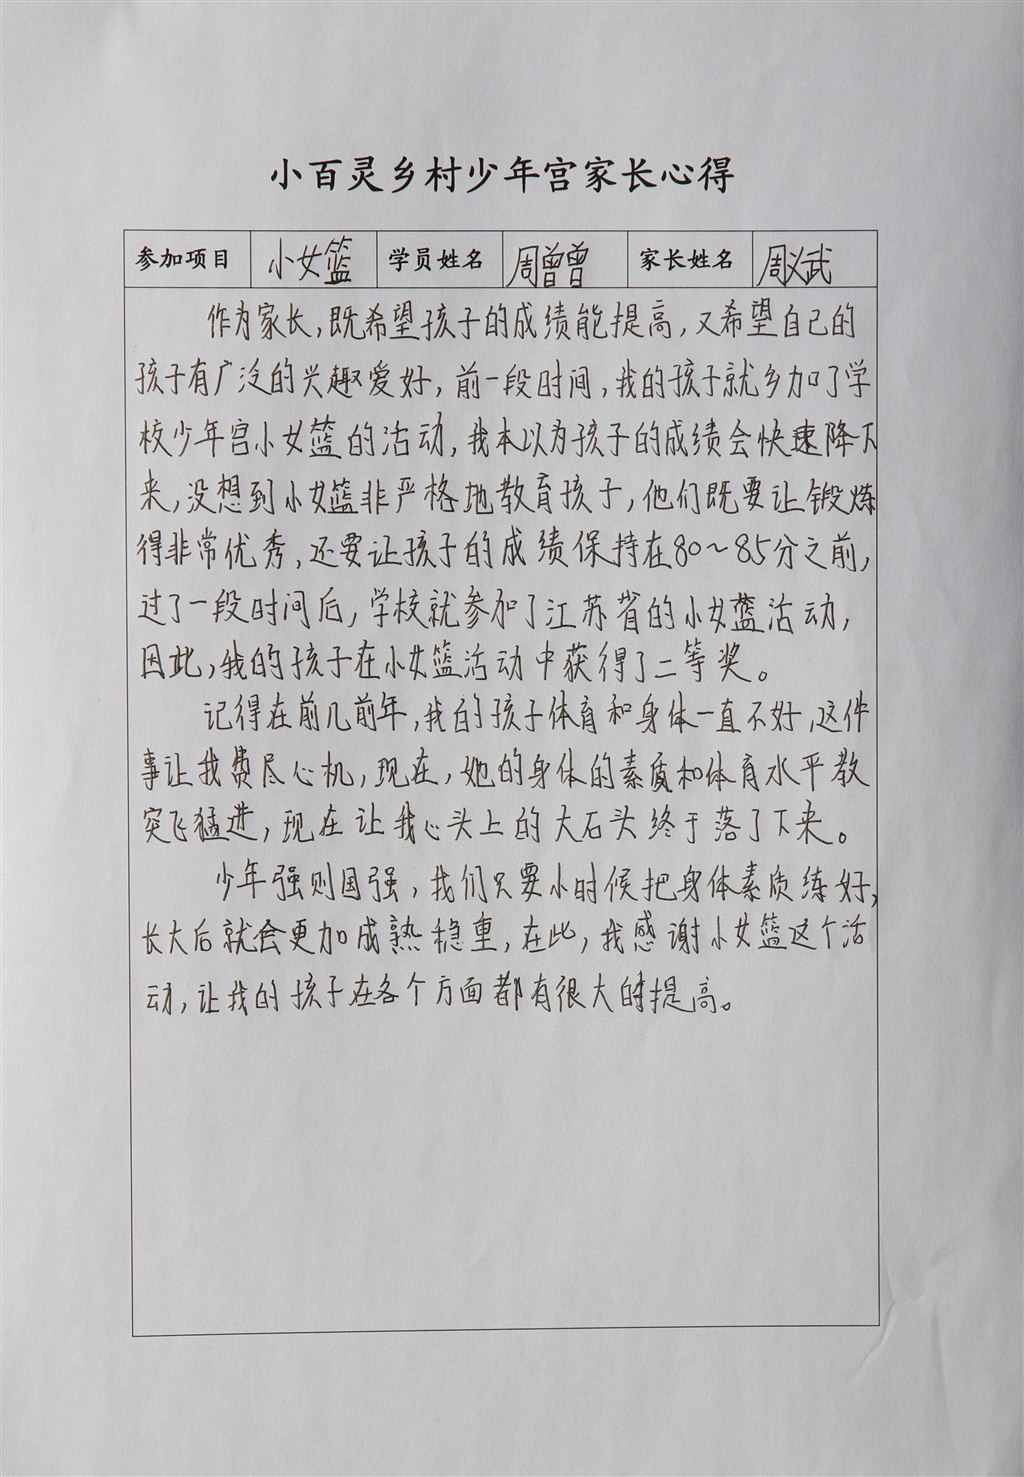 小百灵乡村少年宫家长心得
参加项目 小女篮 学员姓名 周曾曾 家长姓名 周义武
作为家长，既希望孩子的成绩能提高，又希望自己的
孩子有广泛的兴趣爱好，前一段时间，我的孩子就参加了学
校少年宫小女篮的活动，我本以为孩子的成绩会快速降下
来，没想到小女篮非严格地教育孩子，他们既要让锻炼
得非常优秀，还要让孩子的成绩保持在80～85分之前，
过了一段时间后，学校就参加了江苏省的小女蓝活动，
因此，我的孩子在小女篮活动中获得了二等奖。
记得在前几前年，我的孩子体育和身体一直不好，这件
事让我费尽心机，现在，她的身体的素质和体育水平教
突飞猛进，现在让我心头上的大石头终于落了下来。
少年强则国强，我们只要小时候把身体素质练好，
长大后就会更加成熟稳重，在此，我感谢小女篮这个活
动，让我的孩子在各个方面都有很大的提高。